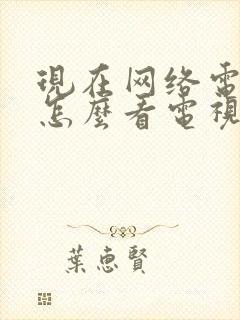 現在网络電
怎麼看電視
葉惠賢